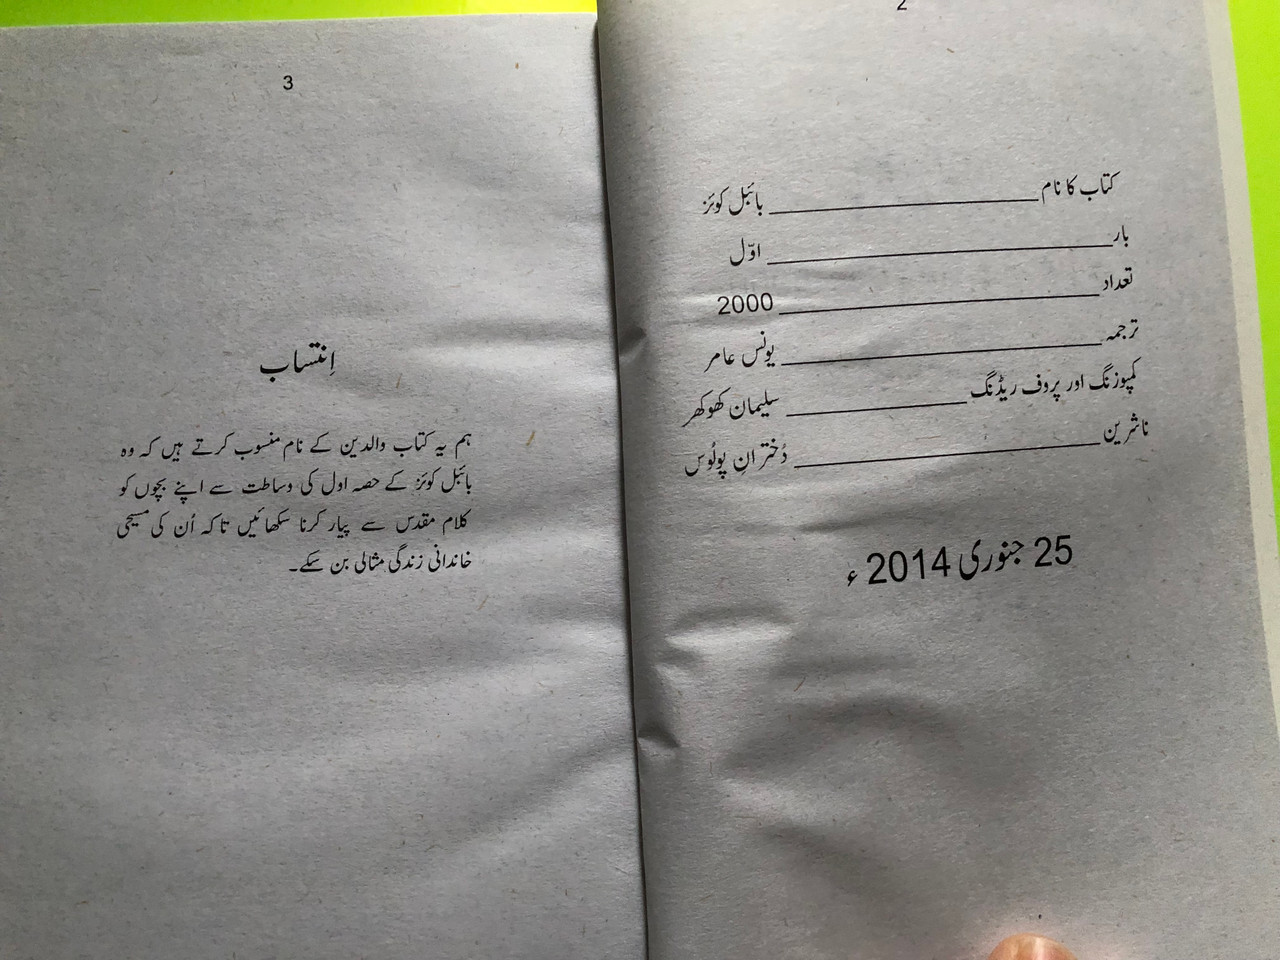 2
کتاب کا نام ____________ بائبل کوئز
بار ____________ اوّل
تعداد ____________ 2000
ترجمہ ____________ یونس عامر
کمپوزنگ اور پروف ریڈنگ ____________ سلیمان کھوکھر
ناشرین ____________ دُخترانِ پولُوس
25 جنوری 2014ء
3
اِنتساب
ہم یہ کتاب والدین کے نام منسوب کرتے ہیں کہ وہ
بائبل کوئز کے حصہ اول کی وساطت سے اپنے بچوں کو
کلام مقدس سے پیار کرنا سکھائیں تاکہ اُن کی مسیحی
خاندانی زندگی مثالی بن سکے۔